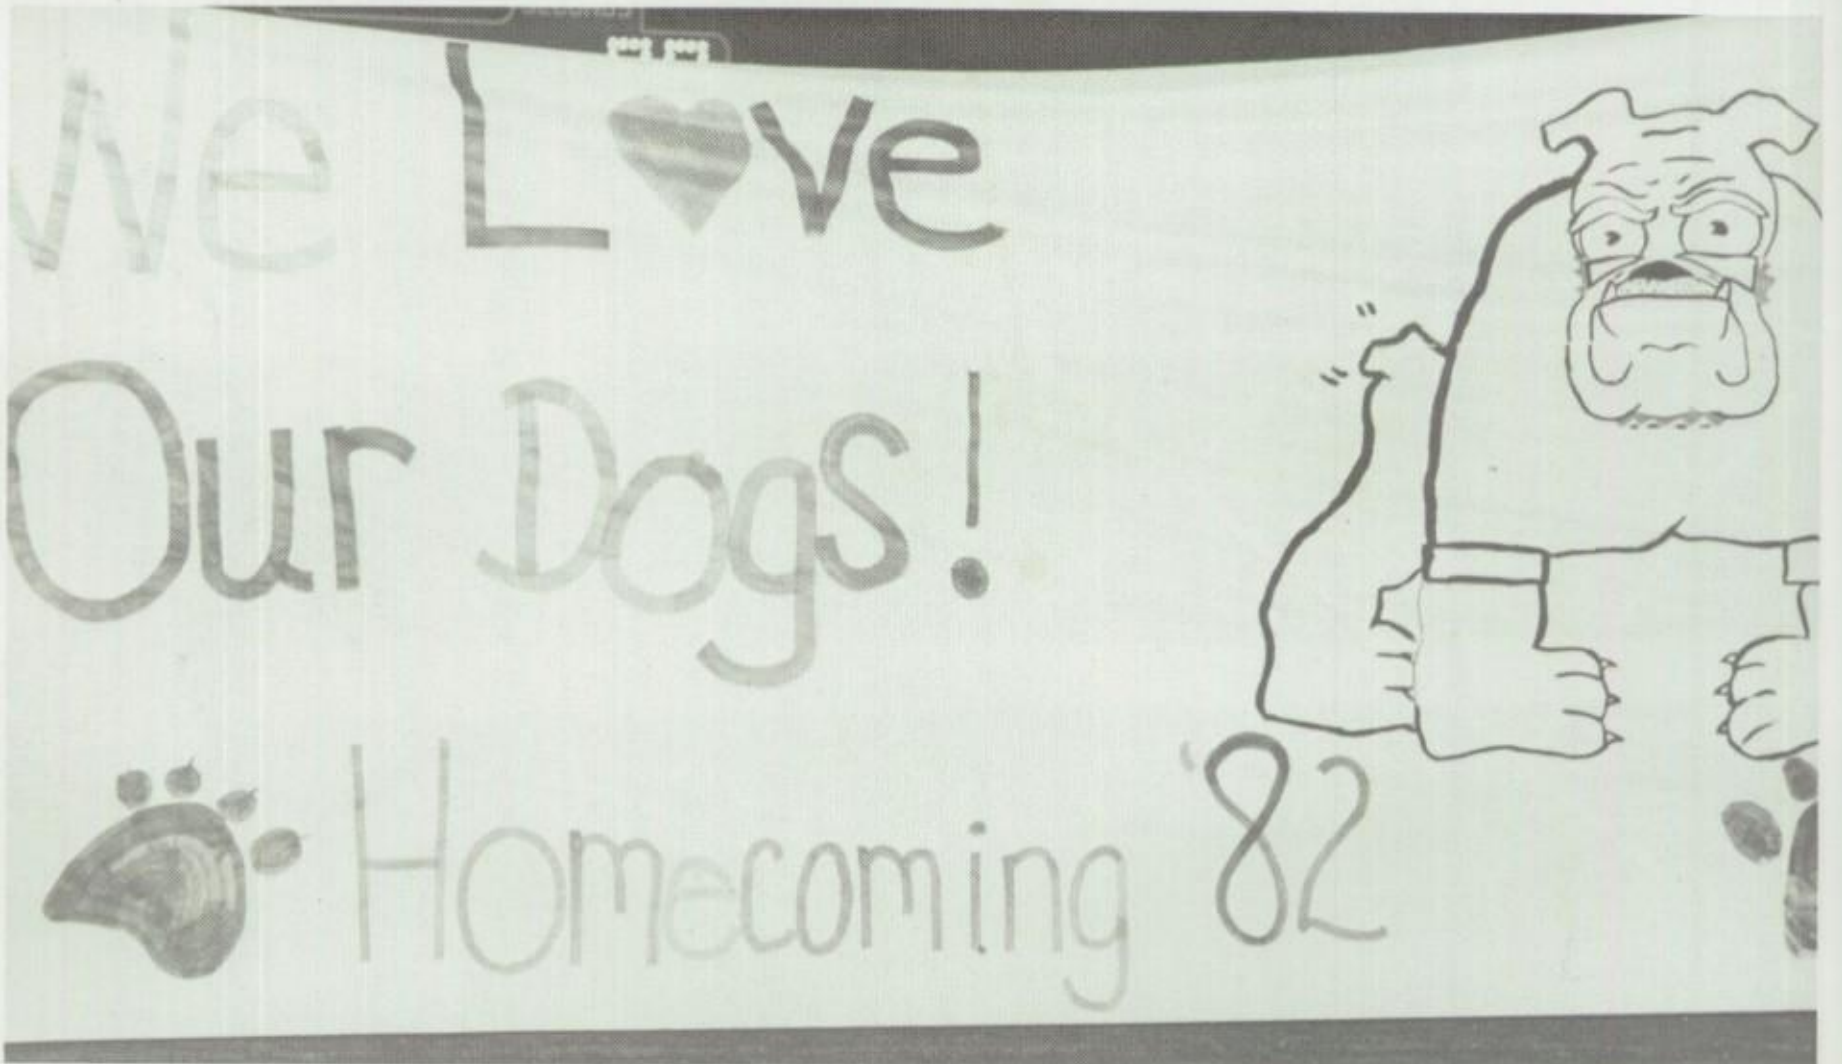 We L♥ve
Our Dogs!
Homecoming '82